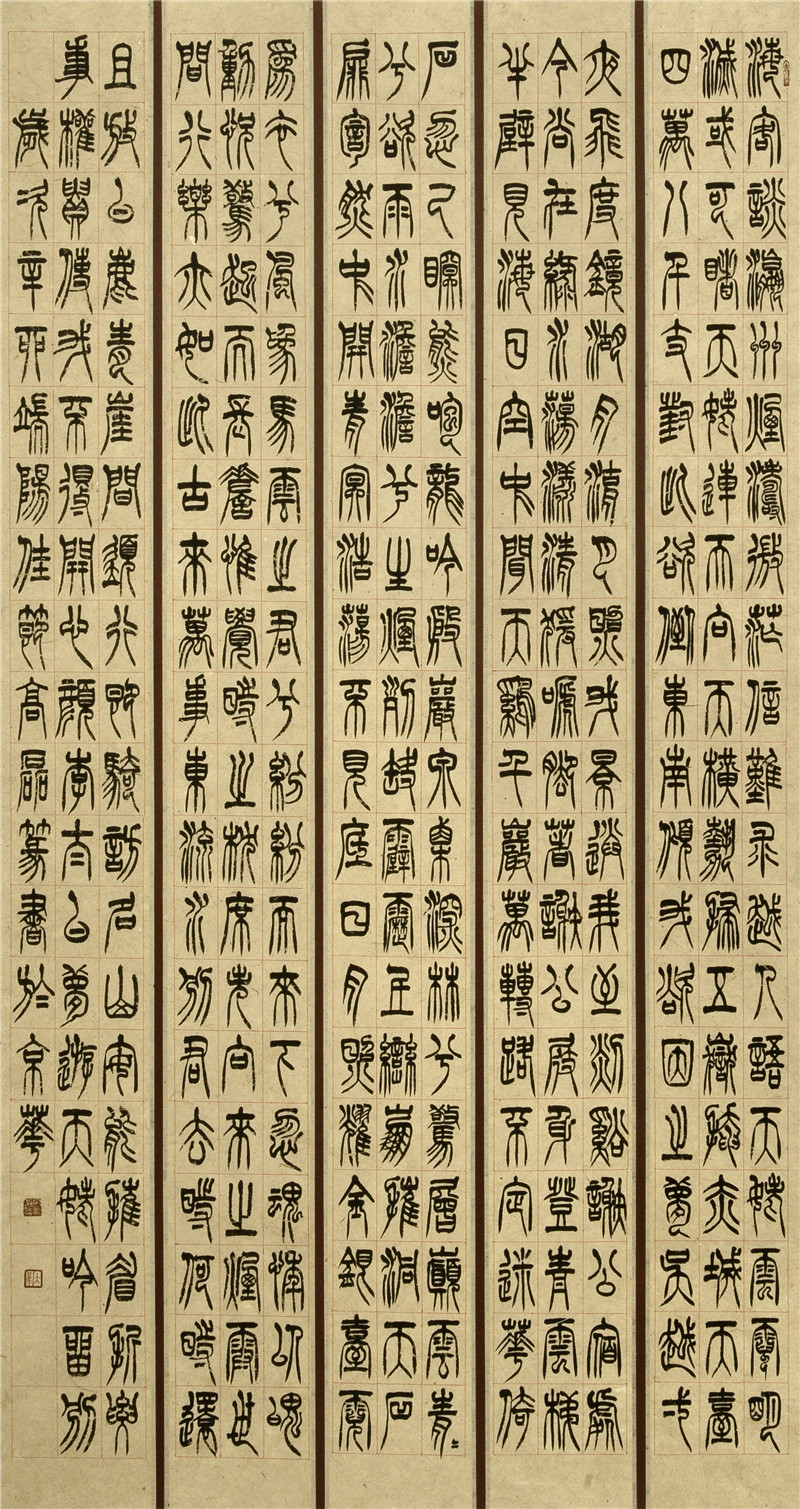 海客談瀛州煙濤微茫信難求越人語天姥雲霓明
滅或可睹天姥連天向天橫勢拔五嶽掩赤城天臺
四萬八千丈對此欲倒東南傾我欲因之夢吳越弌
夜飛度鏡湖月湖月照我景送我至剡谿謝公宿處
今尚在淥水蕩漾清猨啼腳著謝公屐身登青雲梯
半壁見海日空中聞天雞千巖萬轉路不定迷華倚
石忽已暝熊咆龍吟殷巖泉慄深林兮驚層巔雲青〻
兮欲雨水澹澹兮生煙列缺霹靂丘巒崩摧洞天石
扉訇然中開青冥浩蕩不見底日月照耀金銀臺霓
為衣兮風為馬雲之君兮紛紛而來下忽魂悸以魄
動怳驚起而長嗟惟覺時之枕席失向來之煙霞世
間行樂亦如此古來萬事東流水別君去時何時還
且放白鹿青崖間須行即騎訪名山安能摧眉折要
事權貴使我不得開心顏李太白夢遊天姥吟留別
歲次辛卯端陽佳節高磊篆書於京華